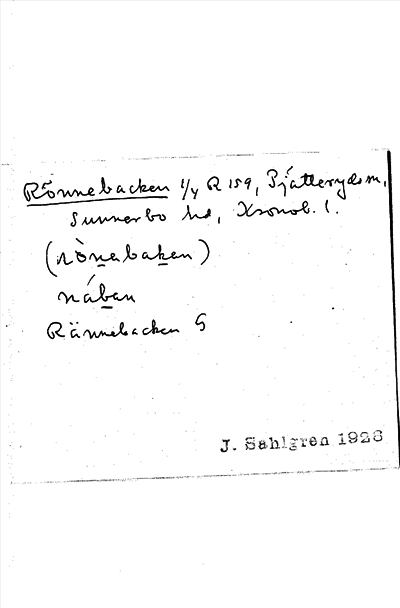 Rönnebacken 1/4 R 159, Pjätteryds sn,
Sunnerbo hd, Kronob. l.
(rònebaken)
náben
Rännebacken G
J. Sahlgren 1928